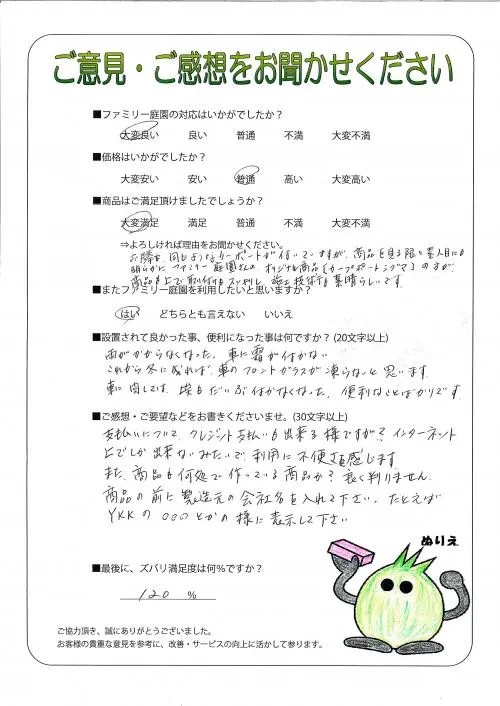 ご意見・ご感想をお聞かせください
■ファミリー庭園の対応はいかがでしたか?
大変良い 良い 普通 不満 大変不満
■価格はいかがでしたか?
大変安い 安い 普通 高い 大変高い
■商品はご満足頂けましたでしょうか?
大変満足 満足 普通 不満 大変不満
⇒よろしければ理由をお聞かせください。
お隣も、同じようなカーポートが付いていますが、商品を見る限り素人目にも
明らかに ファミリー庭園さんの、オリジナル商品(カーポートシグマ)の方が
商品も上で取り付けもスッキリし、施工技術も素晴らしいです。
■またファミリー庭園を利用したいと思いますか?
はい どちらとも言えない いいえ
■設置されて良かった事、便利になった事は何ですか? (20文字以上)
雨がかからなくなった。車に霜が付かない
これから冬になれば、車のフロントガラスが凍らないと思います。
車に関しては、埃もだいぶ付かなくなった、便利なことばかりです
■ご感想・ご要望などをお書きくださいませ。(30文字以上)
支払いについて クレジット支払いも出来る様ですが? インターネット
上でしか出来ないみたいで、利用に不便さを感じます
また、商品も何処で作っている商品か? 良く判りません。
商品の前に製造元の会社名を入れて下さい。たとえば
YKKの ○○○とかの様に表示して下さい
ぬりえ
■最後に、ズバリ満足度は何%ですか?
120 %
ご協力頂き、誠にありがとうございました。
お客様の貴重な意見を参考に、改善・サービスの向上に活かして参ります。